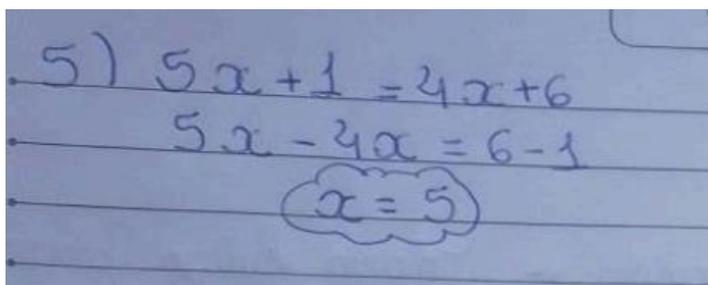 5) 5x+1=4x+6
5x-4x=6-1
x=5